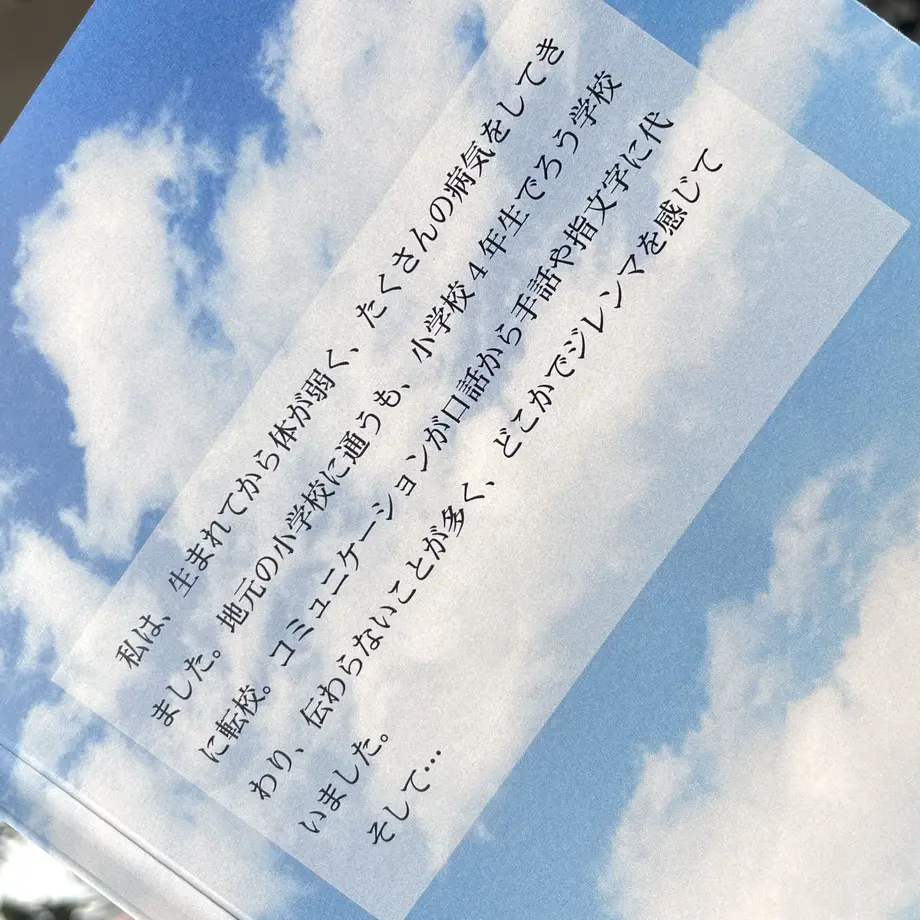 私は、生まれてから体が弱く、たくさんの病気をしてき
ました。地元の小学校に通うも、小学校4年生でろう学校
に転校。コミュニケーションが口話から手話や指文字に代
わり、伝わらないことが多く、どこかでジレンマを感じて
いました。
そして…